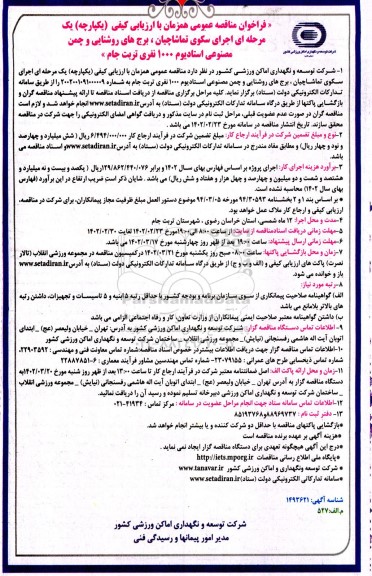 « فراخوان مناقصه عمومی همزمان با ارزیابی کیفی (یکپارچه) یک
مرحله ای اجرای سکوی تماشاچیان ، برج های روشنایی و چمن
مصنوعی استادیوم ۱۰۰۰ نفری تربت جام »
شرکت توسعه و نگهداری اماکن ورزشی کشور
۱- شرکت توسعه و نگهداری اماکن ورزشی کشور در نظر دارد مناقصه عمومی همزمان با ارزیابی کیفی (یکپارچه) یک مرحله ای اجرای
سکوی تماشاچیان ، برج های روشنایی و چمن مصنوعی استادیوم ۱۰۰۰ نفری تربت جام به شماره را از طریق سامانه
تدارکات الکترونیکی دولت (ستاد) برگزار نماید. کلیه مراحل برگزاری مناقصه از دریافت اسناد مناقصه تا ارائه پیشنهاد مناقصه گران و
بازگشایی پاکتها از طریق درگاه سامانه تدارکات الکترونیکی دولت (ستاد) به آدرس www.setadiran.ir انجام خواهد شد و لازم است
مناقصه گران در صورت عدم عضویت قبلی، مراحل ثبت نام در سایت مذکور و دریافت گواهی امضای الکترونیکی را جهت شرکت در مناقصه
محقق سازند. تاریخ انتشار مناقصه در سامانه مورخ ۱۴۰۲/۰۲/۲۳ می باشد.
۲-نوع و مبلغ تضمین شرکت در فرآیند ارجاع کار: مبلغ تضمین شرکت در فرآیند ارجاع کار ۶/۴۹۴/۰۰۰/۰۰۰ ریال (شش میلیارد و چهارصد
و نود و چهار ریال) و مطابق مفاد مندرج در سامانه تدارکات الکترونیکی دولت (ستاد) به آدرس www.setadiran.ir و اسناد مناقصه می
باشد.
۳-برآورد هزینه اجرای کار: اجرای پروژه بر اساس فهارس بهای سال ۱۴۰۲ و برابر ۱۲۹/۸۶۲/۴۴۰/۰۷۶ ریال ( یکصد و بیست و نه میلیارد و
هشتصد و شصت و دو میلیون و چهارصد و چهل هزار و هفتاد و شش ریال) می باشد. شایان ذکر است ضریب ارتفاع در این برآورد (فهارس
بهای سال ۱۴۰۲) محاسبه نشده است.
* بر اساس بند ۱ و ۲ بخشنامه ۹۴/۳۰۵۹۳ مورخه ۹۴/۰۳/۰۵ موضوع دستور العمل مبلغ ظرفیت مجاز پیمانکاران، برای شرکت در مناقصه،
ارزیابی کیفی و ارجاع کار ملاک عمل خواهد بود.
۴-مدت و محل اجرا: ۱۲ ماه شمسی، استان خراسان رضوی ، شهرستان تربت جام
۵-مهلت زمانی دریافت اسناد مناقصه از سایت: از ساعت ۸:۰۰ الی ۱۹:۰۰ مورخ ۱۴۰۲/۰۲/۲۳ لغایت ۱۴۰۲/۰۲/۳۰
۶-مهلت زمانی ارسال پیشنهاد: ساعت ۱۹:۰۰ بعد از ظهر روز چهارشنبه مورخ ۱۴۰۲/۰۳/۱۷ می باشد.
۷-زمان و محل بازگشایی پاکتها: ساعت ۸:۰۰ صبح روز یکشنبه مورخ ۱۴۰۲/۰۳/۲۱ در کمیسیون مناقصه در مجموعه ورزشی انقلاب (تالار
نصرت) پاکت های ارزیابی کیفی و (الف و ب و ج) از طریق درگاه سامانه تدارکات الکترونیکی دولت (ستاد) به آدرس www.setadiran.ir
باز و خوانده می شود.
۸-رتبه مورد نیاز:
الف) گواهینامه صلاحیت پیمانکاری از سوی سازمان برنامه و بودجه کشور با حداقل رتبه ۵ ابنیه و ۵ تاسیسات و تجهیزات، داشتن رتبه
های بالاتر بلامانع می باشد
ب) داشتن گواهینامه معتبر صلاحیت ایمنی پیمانکاران از وزارت تعاون، کار و رفاه اجتماعی الزامی می باشد
۹- اطلاعات تماس دستگاه مناقصه گزار: شرکت توسعه و نگهداری اماکن ورزشی کشور به آدرس: تهران _ خیابان ولیعصر (عج) _ ابتدای
اتوبان آیت اله هاشمی رفسنجانی (نیایش) _ مجموعه ورزشی انقلاب _ ساختمان شرکت توسعه و نگهداری اماکن ورزشی کشور
۱۰- اطلاعات تماس مناقصه گزار جهت دریافت اطلاعات بیشتر در خصوص اسناد مناقصه: شماره تماس معاونت فنی و مهندسی :
شماره تماس ذیحسابی طرح های عمرانی : شماره تماس مهندسین مشاور فرآیند معماری :
۱۱-زمان و محل ارائه پاکت الف: اصل ضمانتنامه معتبر شرکت در فرآیند ارجاع کار تا ساعت ۱۳:۰۰ بعد از ظهر روز شنبه مورخ ۱۴۰۲/۰۳/۲۰ به
دستگاه مناقصه گزار به آدرس تهران _ خیابان ولیعصر (عج) _ ابتدای اتوبان آیت اله هاشمی رفسنجانی (نیایش) _ مجموعه ورزشی انقلاب
_ ساختمان شرکت توسعه و نگهداری اماکن ورزشی دبیرخانه تسلیم نموده و رسید آن را دریافت نمائید.
۱۲-اطلاعات تماس سامانه ستاد جهت انجام مراحل عضویت در سامانه : مرکز تماس : ۴۱۹۳۴-۰۲۱
۱۳- دفتر ثبت نام : ۸۸۹۶۹۷۳۷ و ۸۵۱۹۳۷۶۸
*بازگشایی پاکتهای مناقصه با حداقل دو شرکت کننده و یا بیشتر انجام خواهد شد.
*هزینه آگهی بر عهده برنده مناقصه است
*درج این آگهی هیچگونه تعهدی برای دستگاه مناقصه گزار ایجاد نمی نماید .
*پایگاه ملی اطلاع رسانی مناقصات http://iets.mporg.ir
* شرکت توسعه و نگهداری و اماکن ورزشی کشور www.tanavar.ir
*سامانه تدارکاتی الکترونیکی دولت (ستاد) www.setadiran.ir
شناسه آگهی: ۱۴۹۳۶۲۱
م.الف: ۵۲۷
شرکت توسعه و نگهداری اماکن ورزشی کشور
مدیر امور پیمانها و رسیدگی فنی